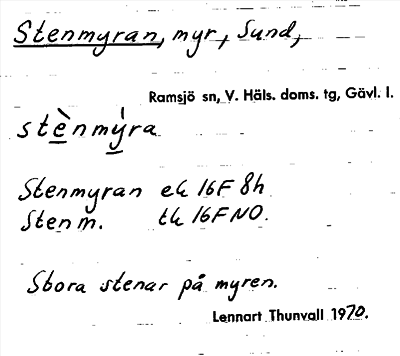 Stenmyran, myr, Sund,
Ramsjö sn, V. Häls. doms. tg, Gävl. l.
stènmýra
Stenmyran ek 16F 8h
Stenm. tk 16F NO.
Stora stenar på myren.
Lennart Thunvall 1970.